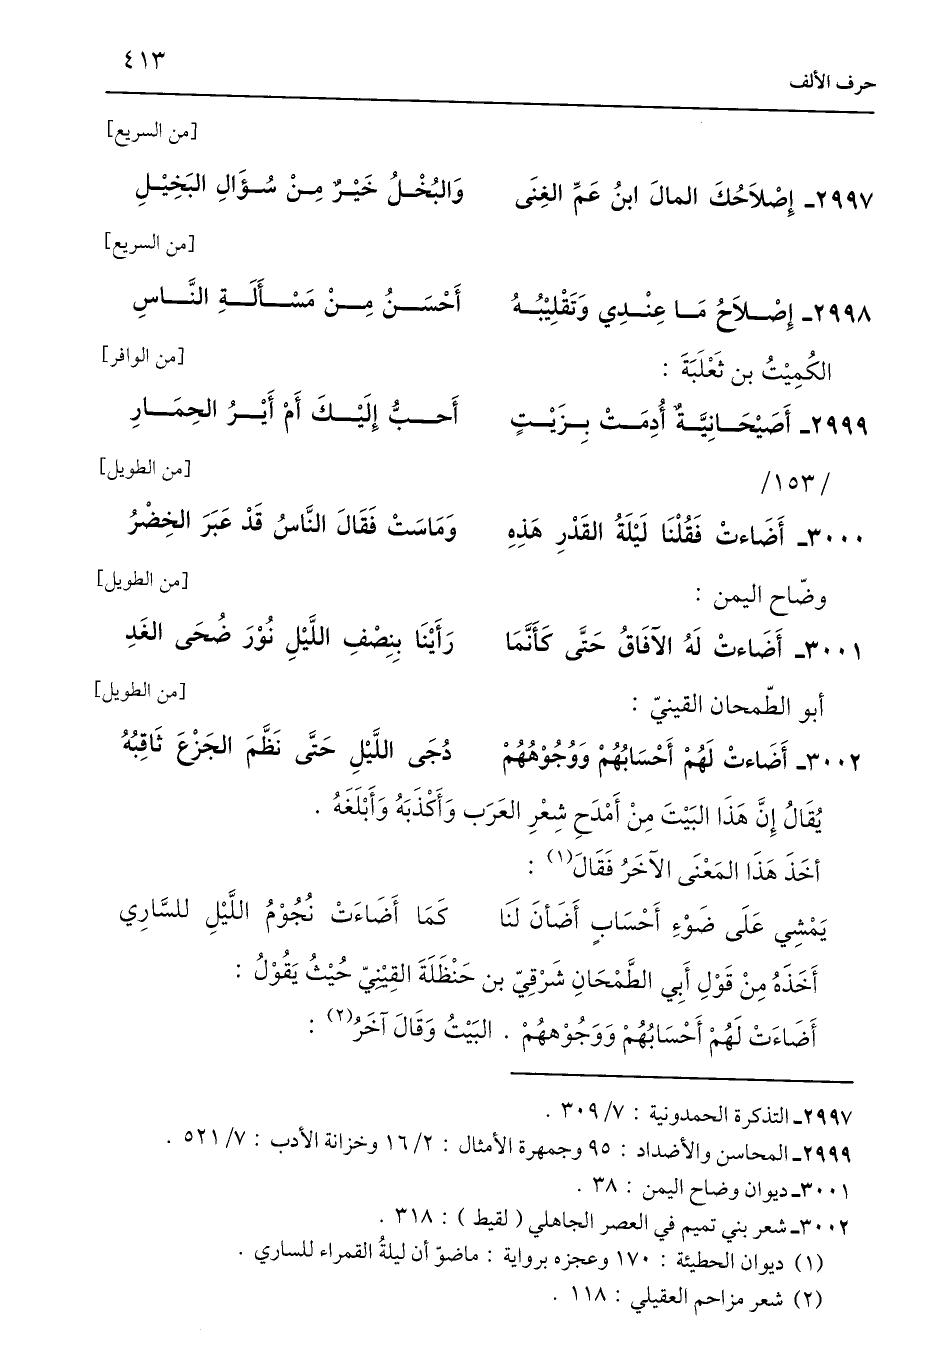 ٤١٣
حرف الألف
[من السريع]
٢٩٩٧ـ إِصْلاَحُكَ المالَ ابنُ عَمِّ الغِنَى وَالبُخْـلُ خَيْـرٌ مِـنْ سُـؤَالِ البَخِيْـلِ
[من السريع]
٢٩٩٨ـ إِصْـلاَحُ مَـا عِنْـدِي وَتَقْلِيْبُـهُ أَحْسَـنُ مِـنْ مَسْـأَلَـةِ النَّـاسِ
الكُمِيْتُ بن ثَعْلَبَةَ :
[من الوافر]
٢٩٩٩ـ أَصَيْحَـانِيَّـةٌ أُدِمَـتْ بِـزَيْـتٍ أَحـبُّ إِلَيْـكَ أَمْ أَيْـرُ الحِمَـارِ
/١٥٣/
[من الطويل]
٣٠٠٠ـ أَضَاءتْ فَقُلْنَا لَيْلَةُ القَدْرِ هَذِهِ وَمَاسَتْ فَقَالَ النَّاسُ قَدْ عَبَرَ الخِضْرُ
وضّاح اليمن :
[من الطويل]
٣٠٠١ـ أَضَاءتْ لَهُ الآفَاقُ حَتَّى كَأَنَّمَا رَأَيْنَا بِنِصْفِ اللَّيْلِ نُوْرَ ضُحَى الغَدِ
أبو الطّمحان القينيّ :
[من الطويل]
٣٠٠٢ـ أَضَاءتْ لَهُمْ أَحْسَابُهُمْ وَوُجُوْهُهُمْ دُجَى اللَّيْلِ حَتَّى نَظَّمَ الجَزْعَ ثَاقِبُهُ
يُقَالُ إِنَّ هَذَا البَيْتَ مِنْ أَمْدَحِ شِعْرِ العَرَب وَأَكْذَبَهُ وَأَبْلَغَهُ .
أخَذَ هَذَا المَعْنَى الآخَرُ فَقَالَ(١) :
يَمْشِي عَلَى ضَوْءِ أَحْسَابٍ أَضَأنَ لَنَا كَمَا أَضَاءَتْ نُجُوْمُ اللَّيْلِ للسَّارِي
أَخَذَهُ مِنْ قَوْلِ أَبِي الطَّمْحَانِ شَرْقِيّ بن حَنْظَلَةَ القِيْنِيّ حُيْثُ يَقُوْلُ :
أَضَاءَتْ لَهُمْ أَحْسَابُهُمْ وَوَجُوْههُمْ . البَيْتُ وَقَالَ آخَرُ(٢) :
٢٩٩٧ـ التذكرة الحمدونية : ٣٠٩/٧ .
٢٩٩٩ـ المحاسن والأضداد : ٩٥ وجمهرة الأمثال : ١٦/٢ وخزانة الأدب : ٥٢١/٧ .
٣٠٠١ـ ديوان وضاح اليمن : ٣٨ .
٣٠٠٢ـ شعر بني تميم في العصر الجاهلي ( لقيط ) : ٣١٨ .
(١) ديوان الحطيئة : ١٧٠ وعجزه برواية : ماضوّ أن ليلةُ القمراء للساري .
(٢) شعر مزاحم العقيلي : ١١٨ .